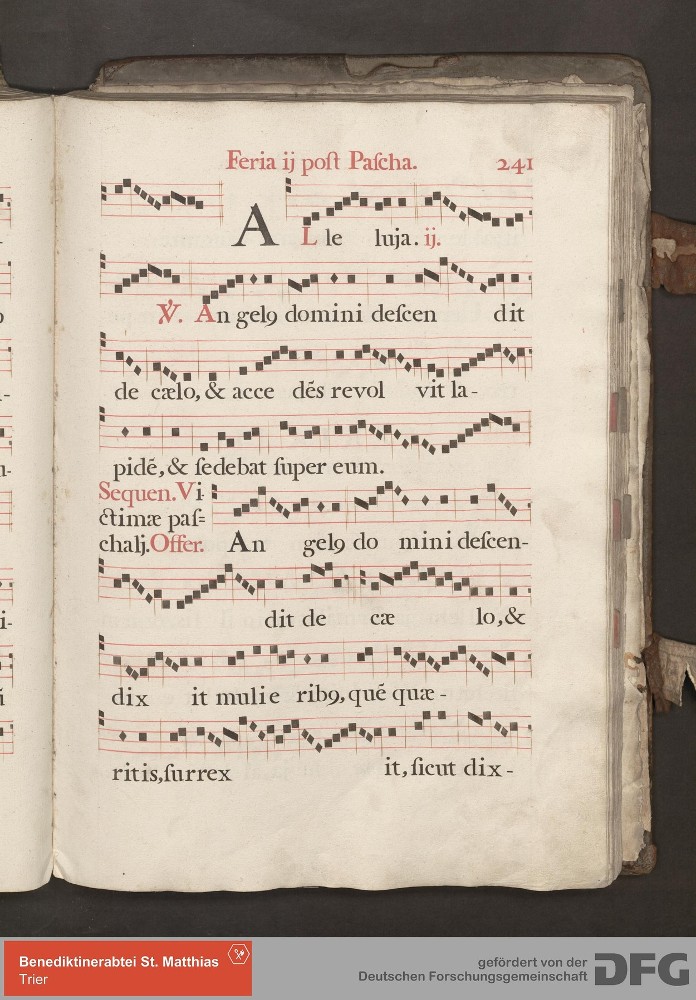 Feria ij poſt Paſcha. 241
AL le luja. ij.
℣. An gelꝯ domini deſcen dit
de cælo, & acce dẽs revol vit la-
pidẽ, & ſedebat ſuper eum.
Sequen. Vi
ctimæ paſ=
chalj. Offer. An gelꝯ do mini deſcen-
dit de cæ lo, &
dix it mulie ribꝯ, quẽ quæ-
ritis, ſurrex it, ſicut dix-
Benediktinerabtei St. Matthias
Trier
gefördert von der
Deutschen Forschungsgemeinschaft
DFG